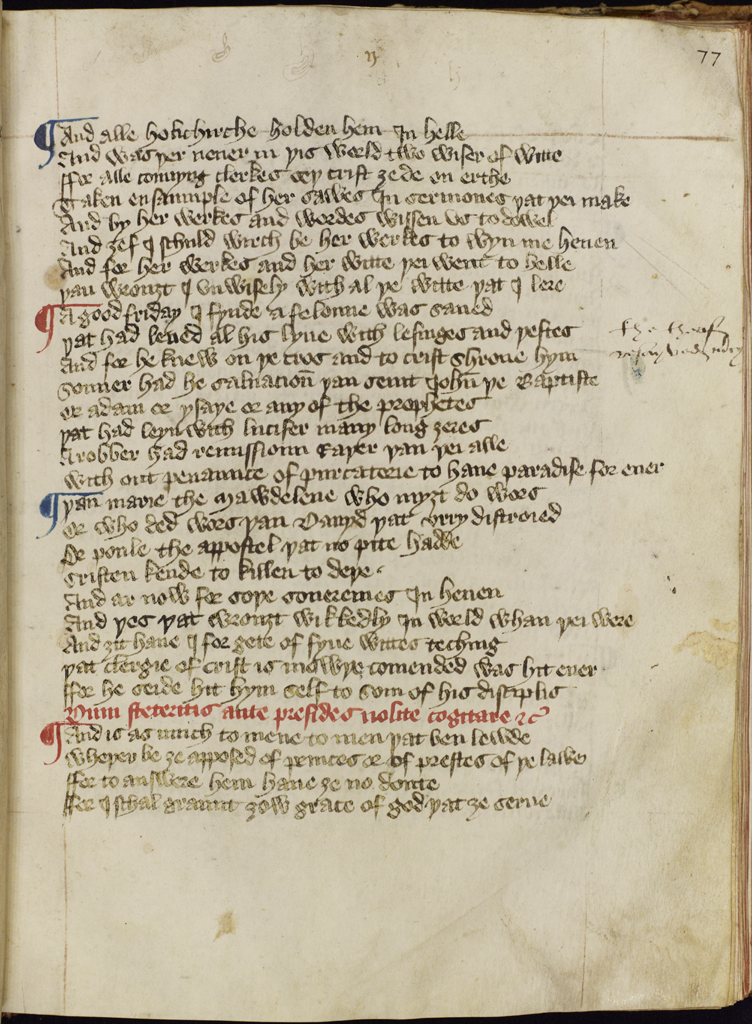 77
And alle holichirche holden hem In helle
And was þer neuer in þis world two wiser of witte
ffor alle connyng clerkes sey crist ȝede on erthe
Taken ensaumple of her sawes In sermones þat þei make
And by her werkes and wordes wissen vs to dowel
And ȝef I schuld wirch be her werkes to wyn me heuen
And for her werkes and her witte þei went to helle
þan wrouȝt I vnwisely with al þe witte þat I lere
A good friday I fynde a felonne was saued
þat had leued al his lyue with lesinges and þeftes
And for he knew on þe cros and to crist shroue hym
Sonner had he saluacioun þan seint Iohn þe Baptiste
or adam or ysaye or any of the prophetes
þat had leyn with lucifer many long ȝeres
A robber had remissioun raþer þan þei alle
With out penaunce of purcatorie to haue paradise for euer
þan marie the mawdelene who myȝt do wors
Or who ded wors þan Dauyd þat vrry distroied
Or poule the appostel þat no pite hadde
Cristen kende to killen to deþe
And ar now for soþe souereines In heuen
And ȝes þat wrouȝt wikkedly In world whan þei were
And ȝit haue I for gete of fyue wittes teching
þat clergie of crist is mowþe comended was hit euer
ffor he seide hit hym self to som of his disciplis
Dum steteritis ante presides nolite cogitare &c
And is as mich to mene to men þat ben lewde
Wheþer be ȝe apposed of princes or of prestes of þe lawe
ffor to answere hem haue ȝe no doute
ffor I schal graunt ȝow grace of god þat ȝe serue
the theaf